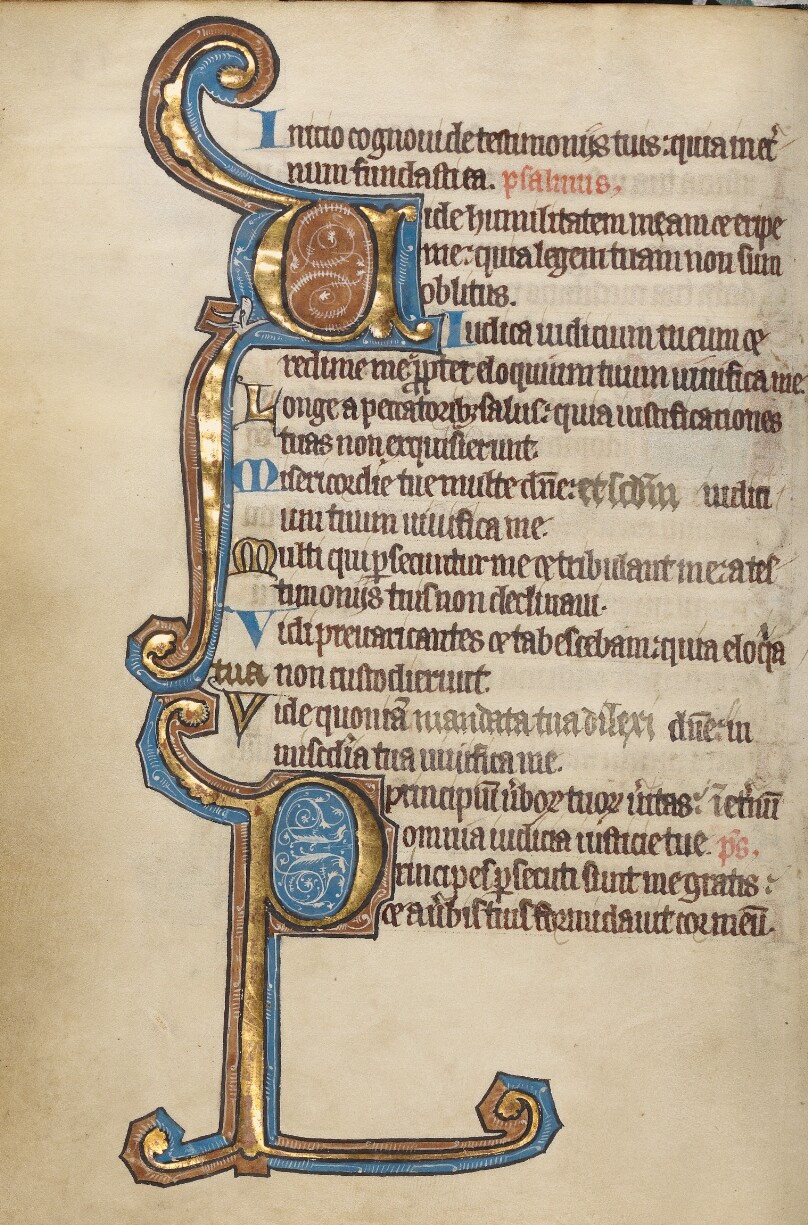 Initio cognoui de testimonijs tuis: quia in et̾
num fundasti ea. psalmus.
Vide humilitatem meam et eripe
me: quia legem tuam non sum
oblitus.
Iudica iudicium meum et
redime me ꝓpter eloquium tuum uiuifica me.
Longe a peccatoribꝫ salus: quia iustificationes
tuas non exquisierunt.
Misericordie tue multe dn̄e: et scd̄m iudici
um tuum uiuifica me.
Multi qui ꝑsecuntur me et tribulant me: a tes
timonijs tuis non declinaui.
Vidi preuaricantes et tabescebam: quia eloq̄a
tua non custodierunt.
Vide quoniā mandata tua dilexi dn̄e: in
misc̄dia tua uiuifica me.
principiū ūboꝝ tuoꝝ ūitas: ī et̾nū
omnia iudicia iusticie tue. ps.
Principes ꝑsecuti sunt me gratis:
et a ūbis tuis formidauit cor meū.